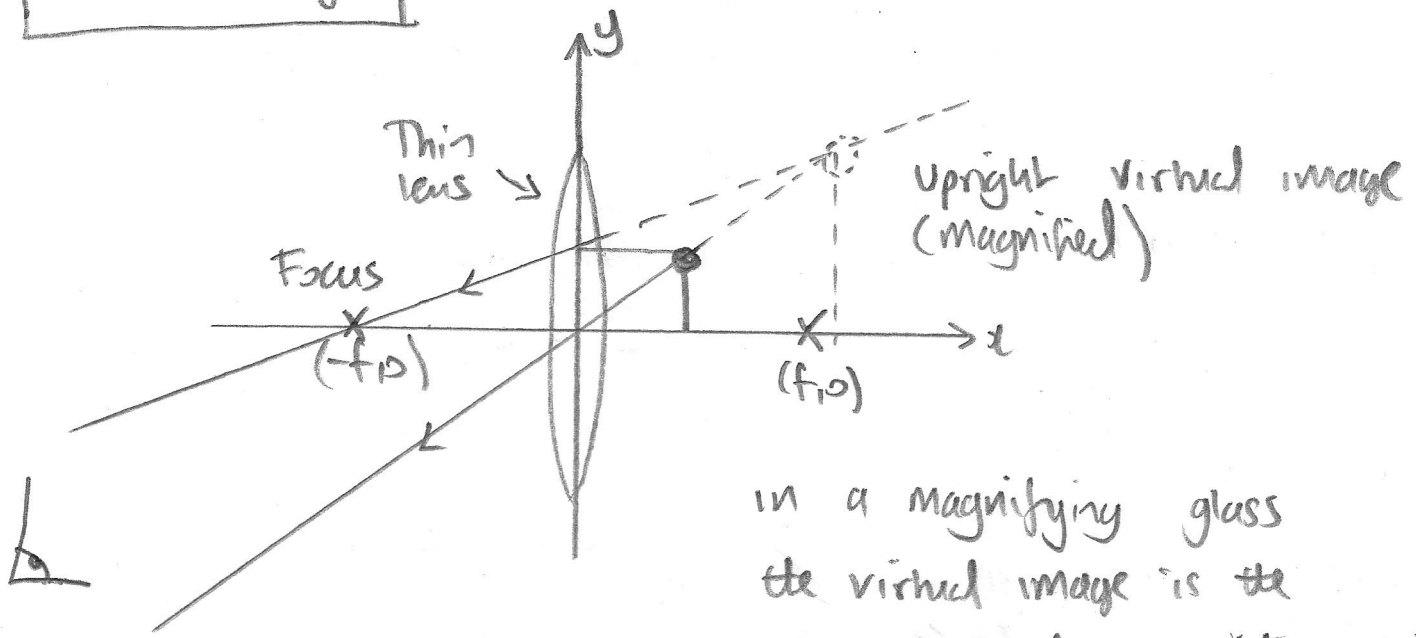 y
Thin
lens
upright virtual image
(magnified)
Focus
x
(-f,0)
(f,0)
in a magnifying glass
the virtual image is the